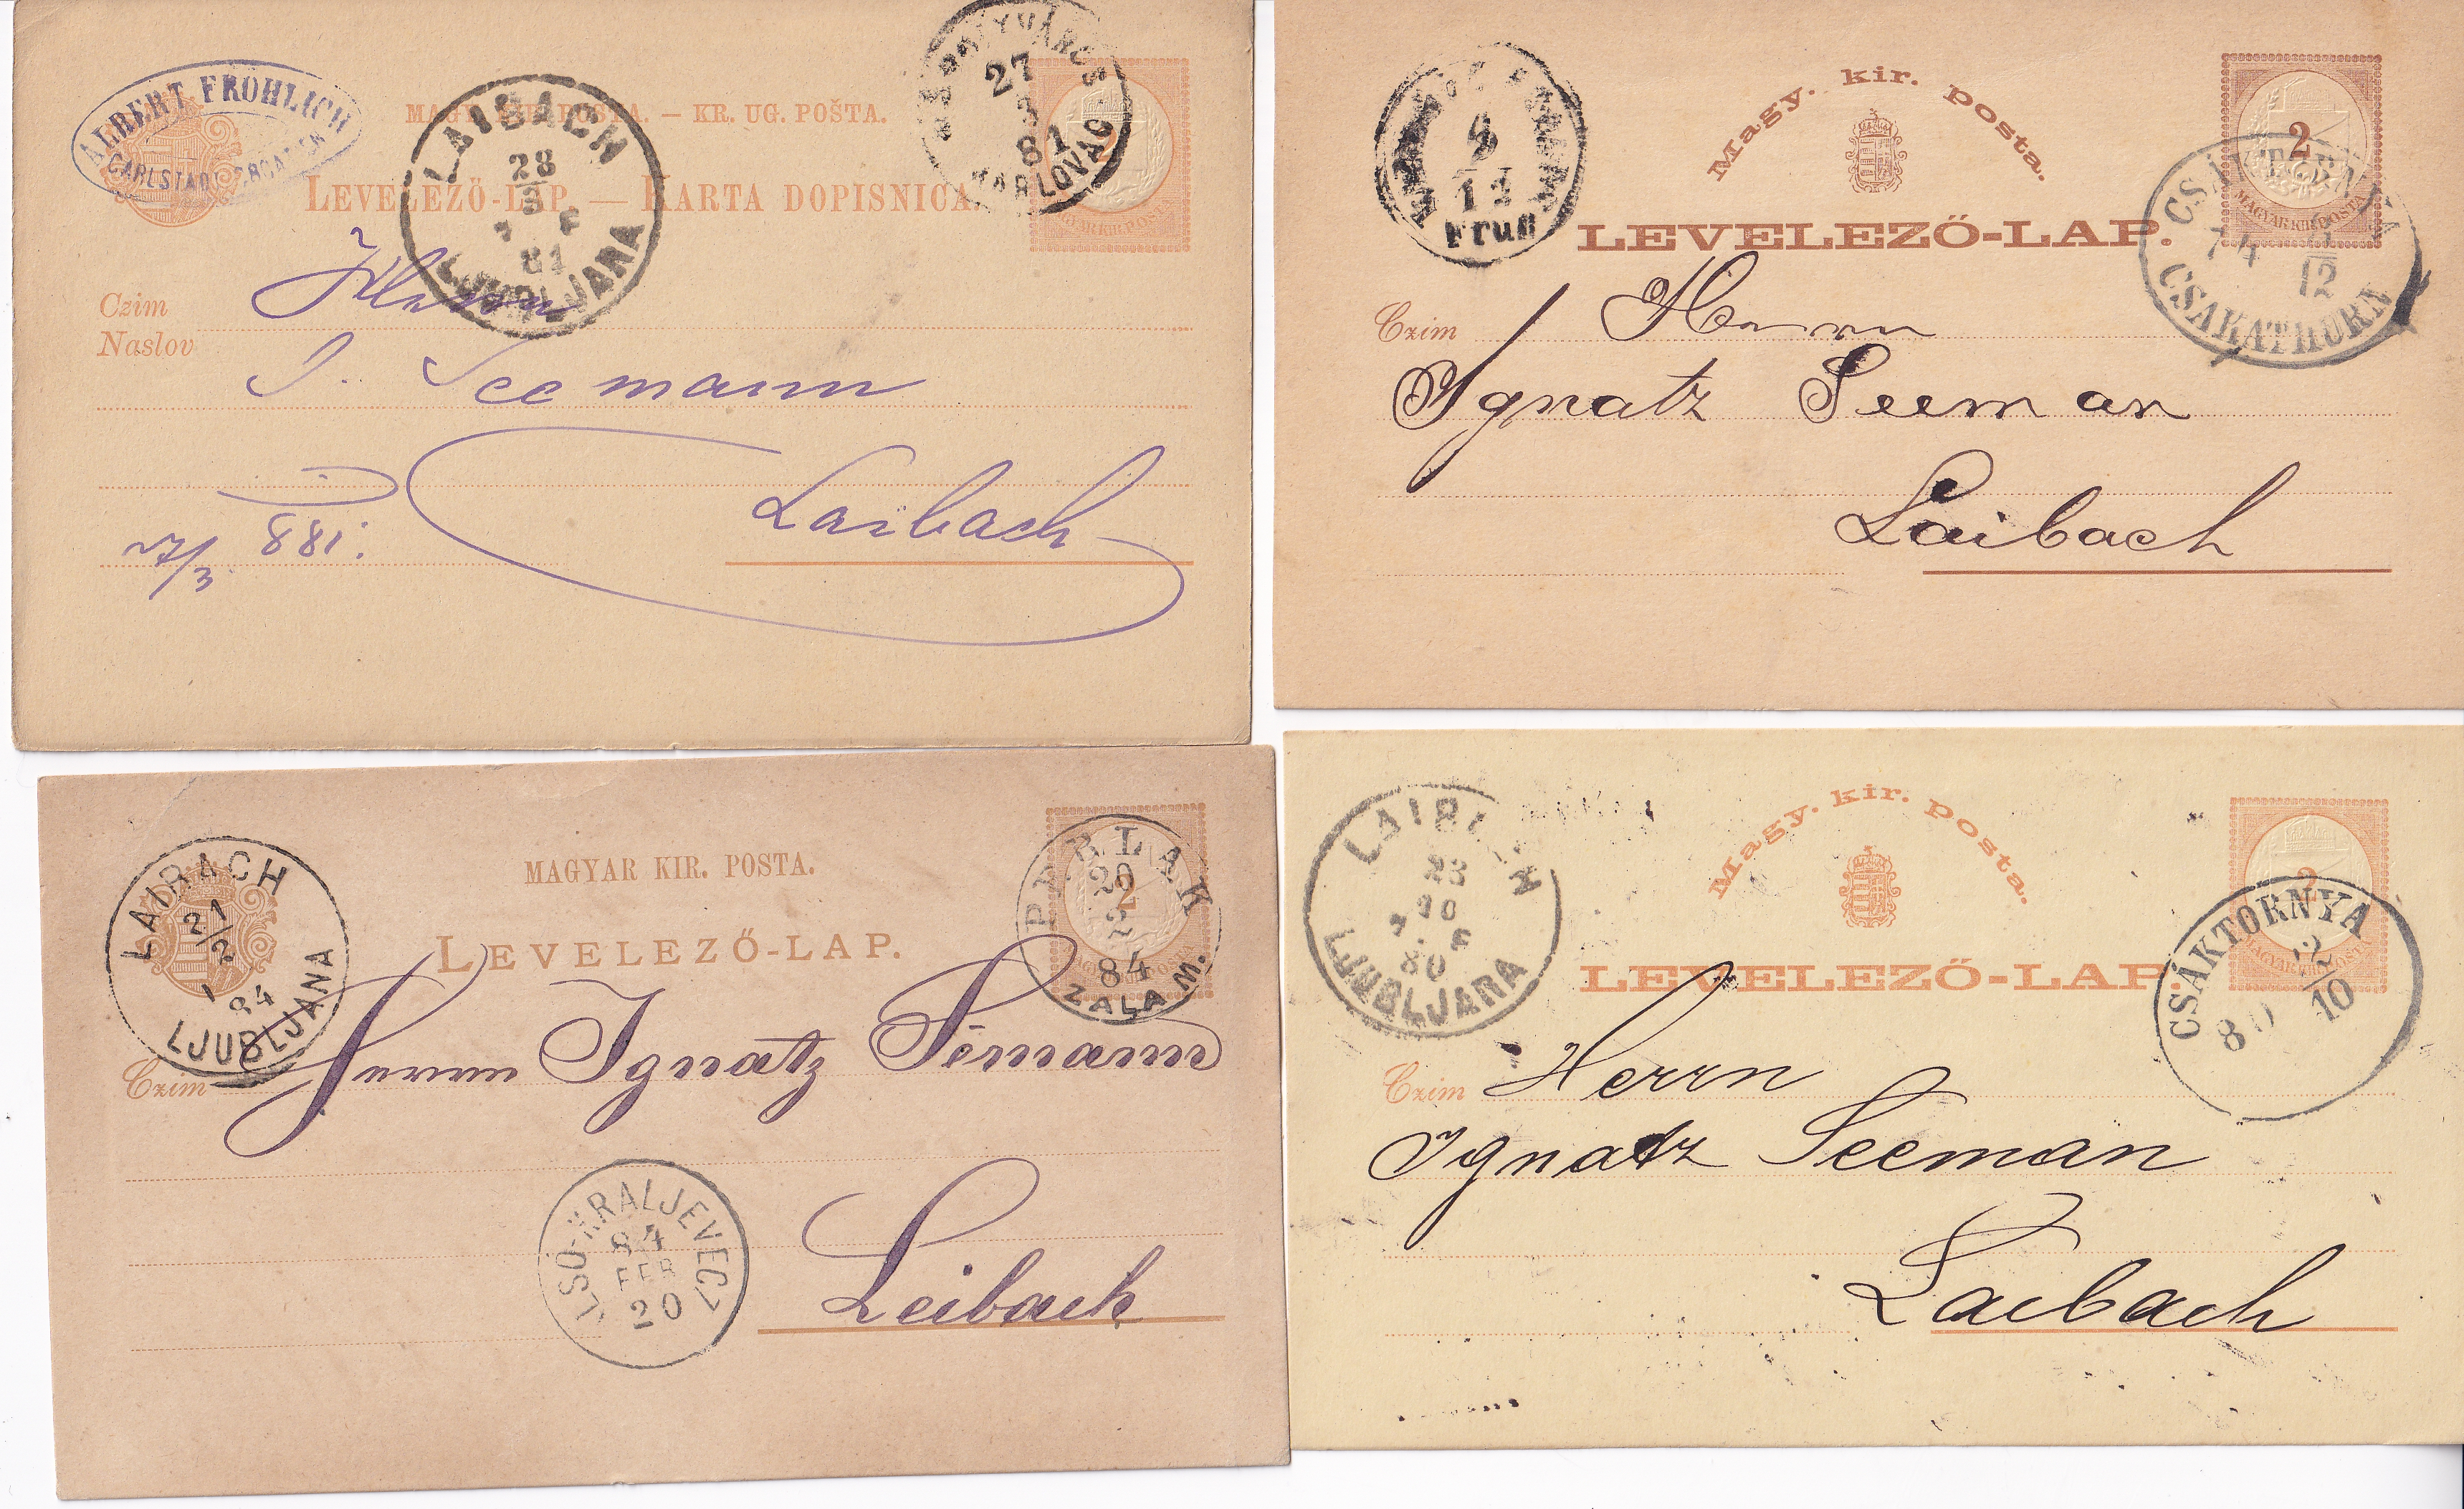 ALBERT FRÖHLICH
CARLSTADT
MAGY. KIR. POSTA. — KR. UG. POŠTA.
LEVELEZŐ-LAP. — KARTA DOPISNICA.
LAIBACH
28
3
81
LJUBLJANA
27
3
81
KARLOVAC
2
MAGYAR KIR. POSTA
Czim
Naslov
Herrn
I. Seemann
Laibach
27/3. 881.
Magy. kir. posta.
LEVELEZŐ-LAP.
12
Früh
2
MAGYAR KIR. POSTA
CSÁKTORNYA
74
12
CSAKATHURN
Czim
Herrn
Ignatz Seeman
Laibach
MAGYAR KIR. POSTA.
LEVELEZŐ-LAP.
LAIBACH
21
2
1 84
LJUBLJANA
PERLAK
20
2
84
ZALA M.
2
Czim
Herrn Ignatz Semann
Leibach
ALSÓ-KRALJEVECZ
84
FEB
20
Magy. kir. posta.
LEVELEZŐ-LAP.
LAIBACH
23
10
7. F
80
LJUBLJANA
2
MAGYAR KIR. POSTA
CSÁKTORNYA
22/10
80
Czim
Herrn
Ignatz Seeman
Laibach